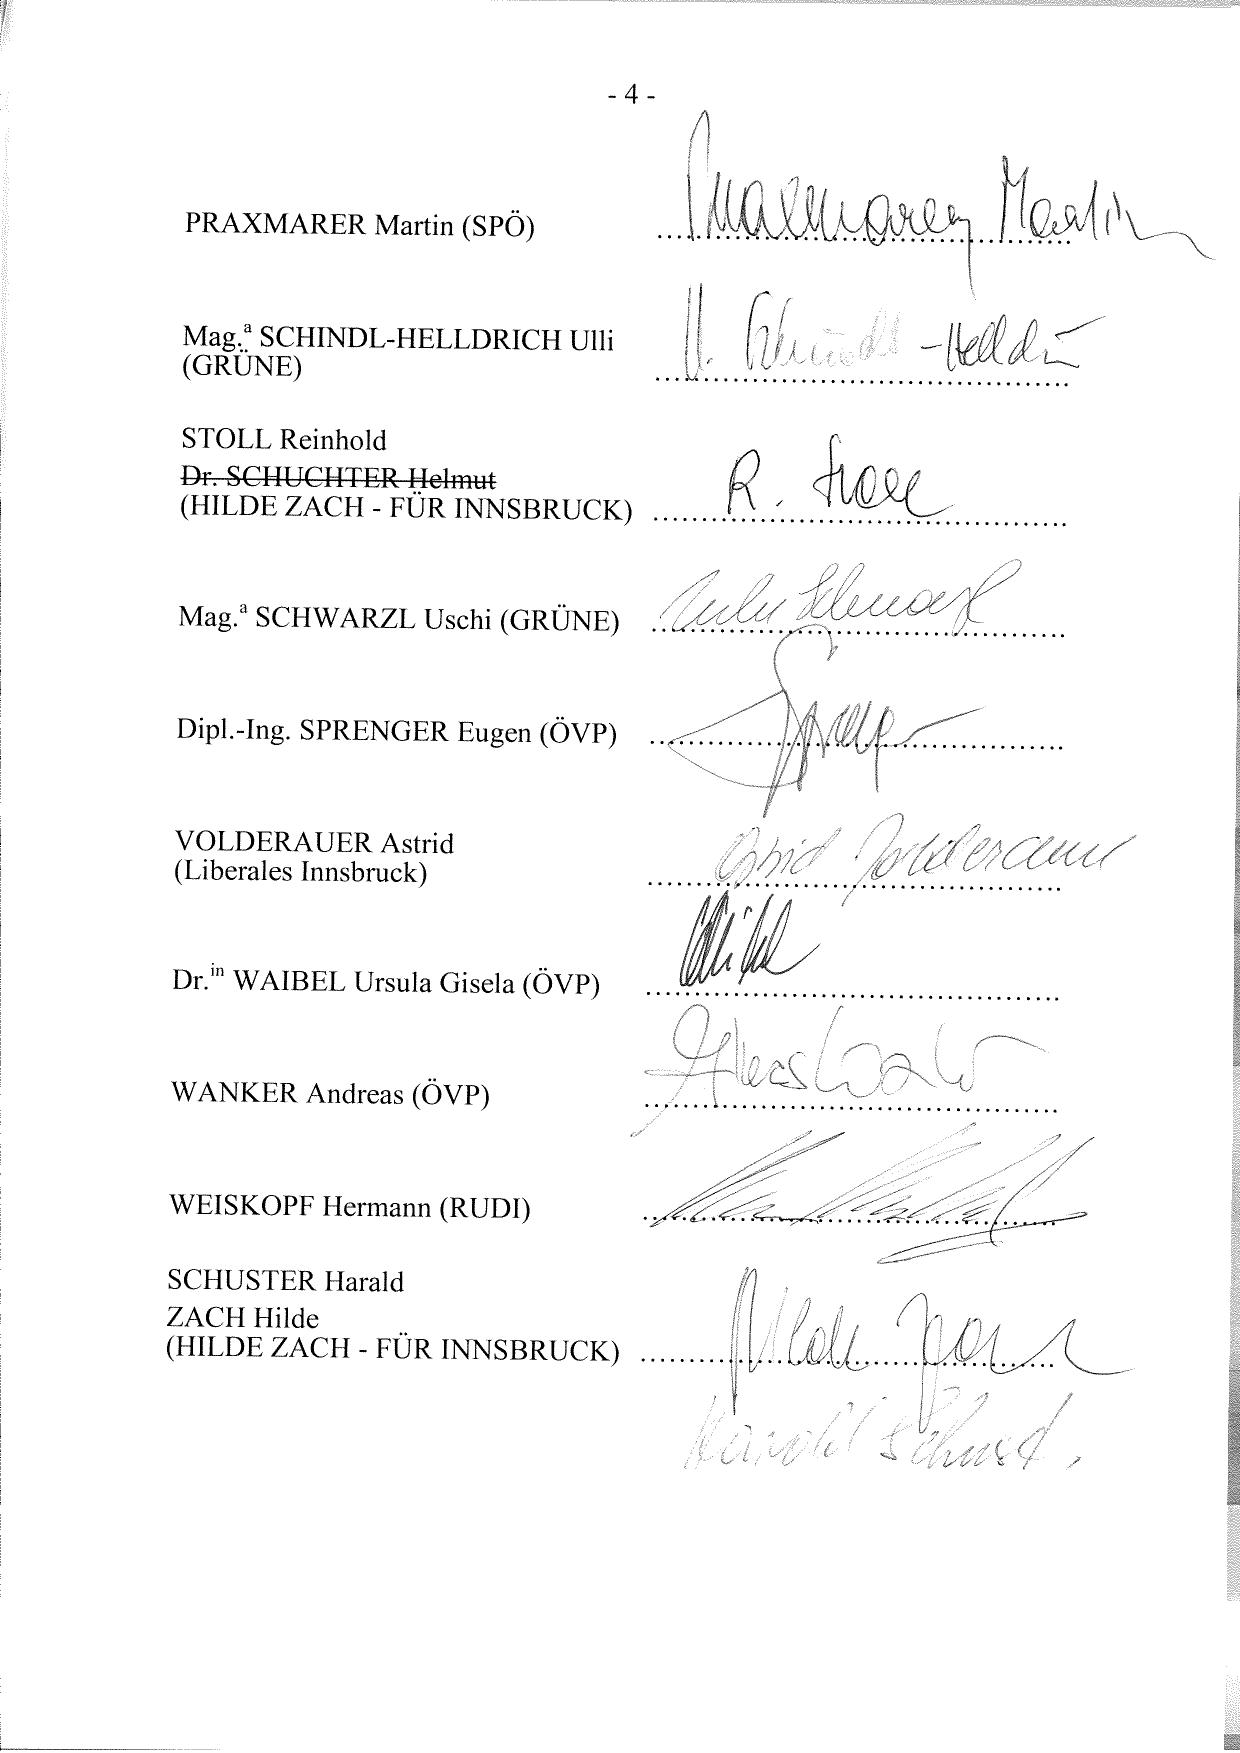 - 4 -
PRAXMARER Martin (SPÖ) Praxmarer Martin
Mag.ª SCHINDL-HELLDRICH Ulli U. Schindl-Helldri
(GRÜNE)
STOLL Reinhold
Dr. SCHUCHTER Helmut
(HILDE ZACH - FÜR INNSBRUCK) R. Stoll
Mag.ª SCHWARZL Uschi (GRÜNE) Uschi Schwarzl
Dipl.-Ing. SPRENGER Eugen (ÖVP)
VOLDERAUER Astrid Astrid Volderauer
(Liberales Innsbruck)
Dr.in WAIBEL Ursula Gisela (ÖVP)
WANKER Andreas (ÖVP)
WEISKOPF Hermann (RUDI)
SCHUSTER Harald
ZACH Hilde
(HILDE ZACH - FÜR INNSBRUCK) Hilde Zach
Harald Schust.